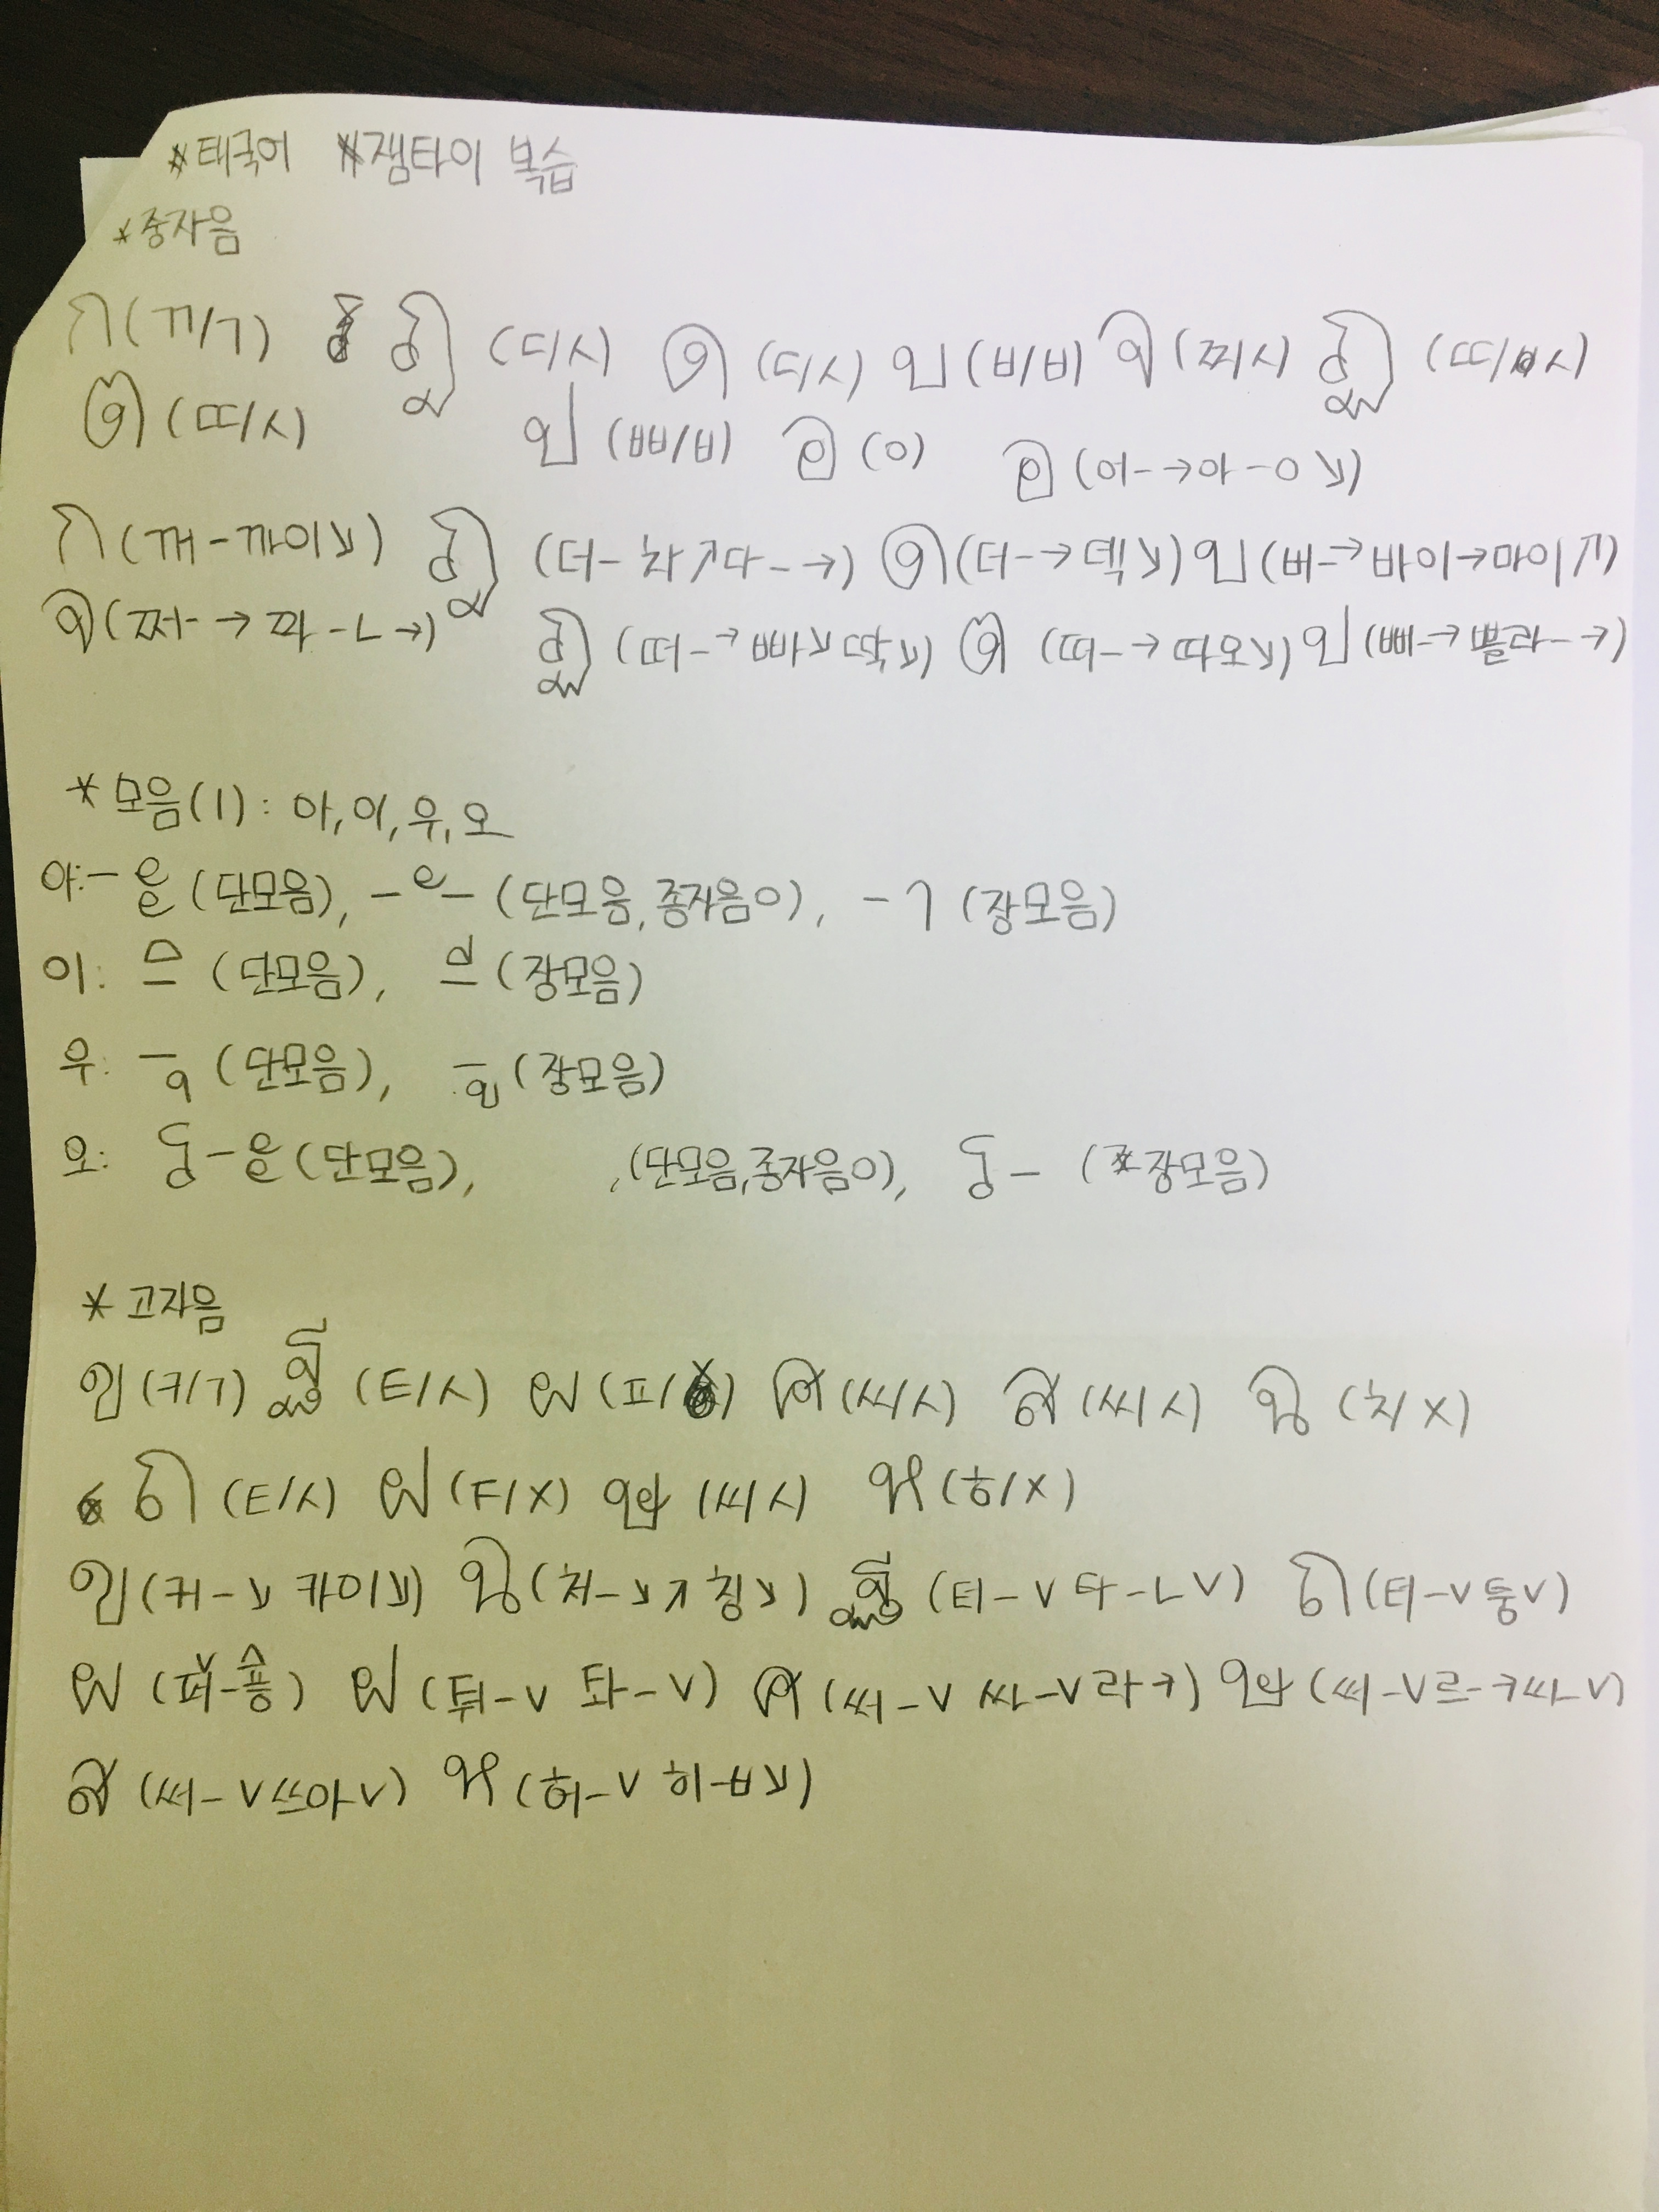 *태국어 *잼타이 복습
*중자음
ก(ㄲ/ㄱ) ฎ (ㄷ/ㅅ) ด (ㄷ/ㅅ) บ (ㅂ/ㅂ) จ (ㅉ/ㅅ) ฏ (ㄸ/ㅅ)
ต (ㄸ/ㅅ) ป (ㅃ/ㅂ) อ (ㅇ) อ (어-→아-ㅇ↘)
ก (꺼-까이↘) ฎ (더-차↗다-→) ด (더-→덱↘) บ (버-→바이→마이↗)
จ (쩌-→짜-ㄴ→) ฏ (떠-→빠↘딱↘) ต (떠-→따오↘) ป (뻐-→쁠라-→)
*모음(1): 아,이,우,오
아:-ะ (단모음), -ั- (단모음,종자음ㅇ), -า (장모음)
이: -ิ (단모음), -ี (장모음)
우: -ุ (단모음), -ู (장모음)
오: โ-ะ (단모음), (단모음,종자음ㅇ), โ- (장모음)
*고자음
ข (ㅋ/ㄱ) ฐ (ㅌ/ㅅ) ผ (ㅍ/) ศ (ㅆ/ㅅ) ส (ㅆ/ㅅ) ฉ (ㅊ/X)
ถ (ㅌ/ㅅ) ฝ (F/X) ษ (ㅆ/ㅅ) ห (ㅎ/X)
ข (커-↘카이↘) ฉ (처-↘↗칭↘) ฐ (터-V타-ㄴV) ถ (터-V퉁V)
ผ (퍼-픙) ฝ (풔-V 퐈-V) ศ (써-V 싸-V라→) ษ (써-V르-→싸-V)
ส (써-V쓰아V) ห (허-V 히-ㅂ↘)